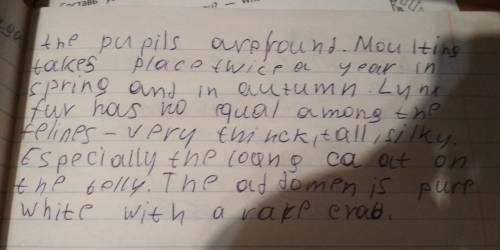 the pupils are round. Moulting
takes place twice a year in
spring and in autumn. Lynx
fur has no equal among the
felines – very thinck, tall, silky.
Especially the loang ca at on
the belly. The abdomen is pure
white with a rare crab.